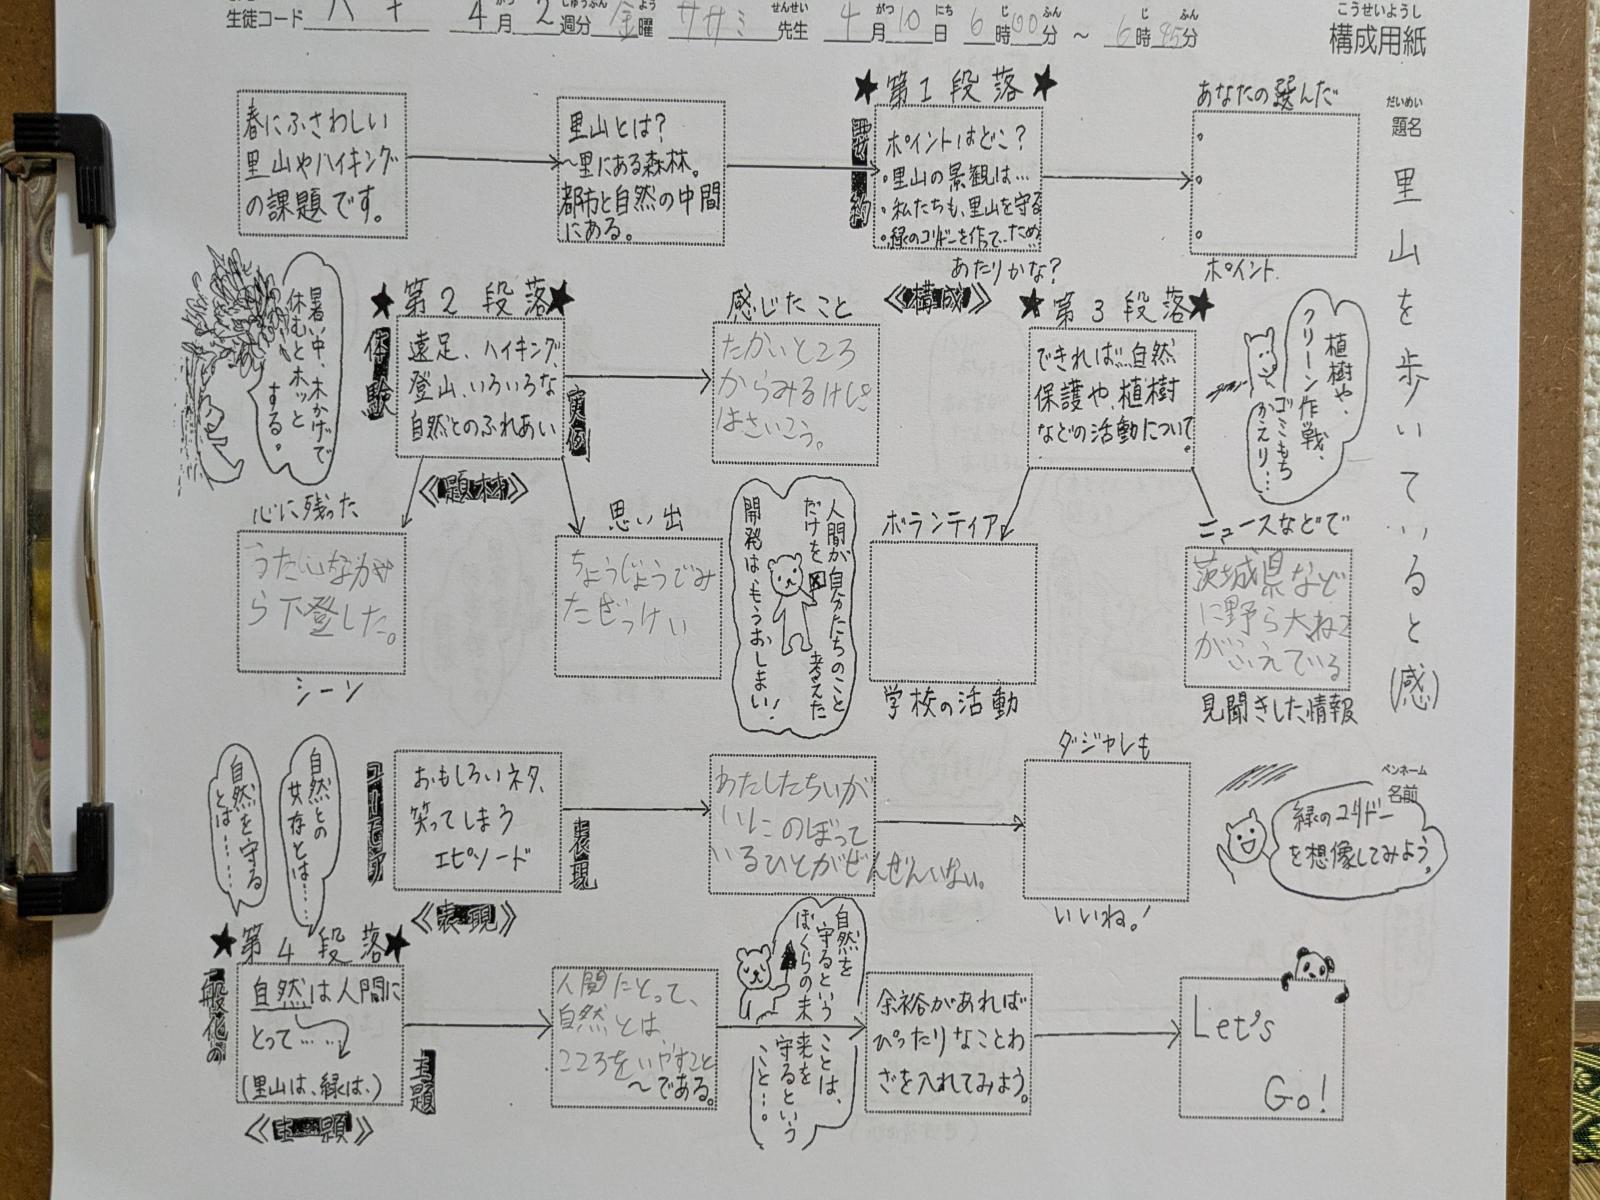 生徒コード 八十 4月2週分 金曜 ササミ先生 4月10日 6時00分 ～ 6時45分
こうせいようし
構成用紙
だいめい
題名
里山を歩いていると(感)
ペンネーム
名前
春にふさわしい
里山やハイキング
の課題です。
里山とは？
～里にある森林。
都市と自然の中間
にある。
★第1段落★
要約
ポイントはどこ？
・里山の景観は…
・私たちも、里山を守る
・緑のコリドーを作って…ため
あたりかな？
《構成》
あなたの選んだ
ポイント
暑い中、木かげで
休むとホッと
する。
★第2段落★
体験
遠足、ハイキング、
登山、いろいろな
自然とのふれあい
実例
《題材》
感じたこと
たかいところ
からみるけしき
はさいこう。
★第3段落★
できれば…自然
保護や、植樹
などの活動について。
植樹や、
クリーン作戦、
ゴミもち
かえり…
心に残った
うたいながや
ら下登した。
シーン
思い出
ちょうじょうでみ
たぜっけい
人間が自分たちのこと
だけを考えた
開発はもうおしまい！
ボランティア
学校の活動
ニュースなどで
茨城県など
に野ら犬ねこ
がふえている
見聞きした情報
自然との
共存とは……
自然を守る
とは……
ユーモア
おもしろいネタ、
笑ってしまう
エピソード
表現
《表現》
わたしたちいが
いにのぼって
いるひとがぜんぜんいない。
ダジャレも
いいね！
緑のコリドー
を想像してみよう。
★第4段落★
一般化の
自然は人間に
とって……
(里山は、緑は、)
主題
《主題》
人間にとって、
自然とは、
こころをいやすこと
～である。
自然を
守るという
ことは、
ぼくらの未来を
守るという
こと…。
余裕があれば
ぴったりなことわ
ざを入れてみよう。
Let's
Go!